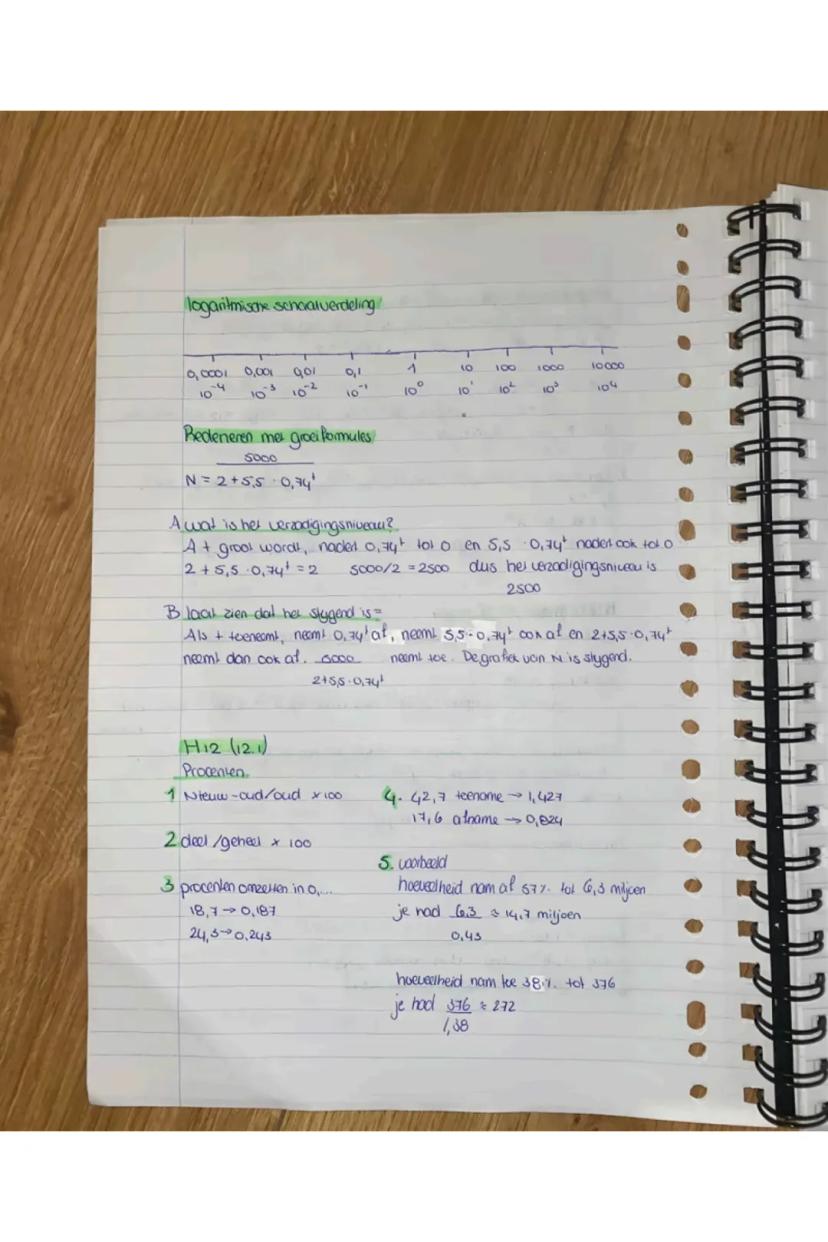 logaritmische schaalverdeling
0,0001 0,001 0,01 0,1 1 10 100 1000 10000
10⁻⁴ 10⁻³ 10⁻² 10⁻¹ 10⁰ 10¹ 10² 10³ 10⁴
Redeneren met groeiformules
5000
N = 2+5,5 · 0,74ᵗ
A wat is het verzadigingsniveau?
A t groot wordt, nadert 0,74ᵗ tot 0 en 5,5 · 0,74ᵗ nadert ook tot 0
2 + 5,5 · 0,74ᵗ = 2 5000/2 = 2500 dus het verzadigingsniveau is
2500
B laat zien dat het stijgend is =
Als t toeneemt, neemt 0,74ᵗ af, neemt 5,5 · 0,74ᵗ ook af en 2+5,5 · 0,74ᵗ
neemt dan ook af. 5000 neemt toe. De grafiek van N is stijgend.
2+5,5 · 0,74ᵗ
H12 (12.1)
Procenten
1 Nieuw - oud/oud × 100
2 deel /geheel × 100
3 procenten omzetten in 0,....
18,7 → 0,187
24,3 → 0,243
4. 42,7 toename → 1,427
17,6 afname → 0,824
5. voorbeeld
hoeveelheid nam af 57% tot 6,3 miljoen
je had 6,3 ≈ 14,7 miljoen
0,43
hoeveelheid nam toe 38% tot 376
je had 376 ≈ 272
1,38